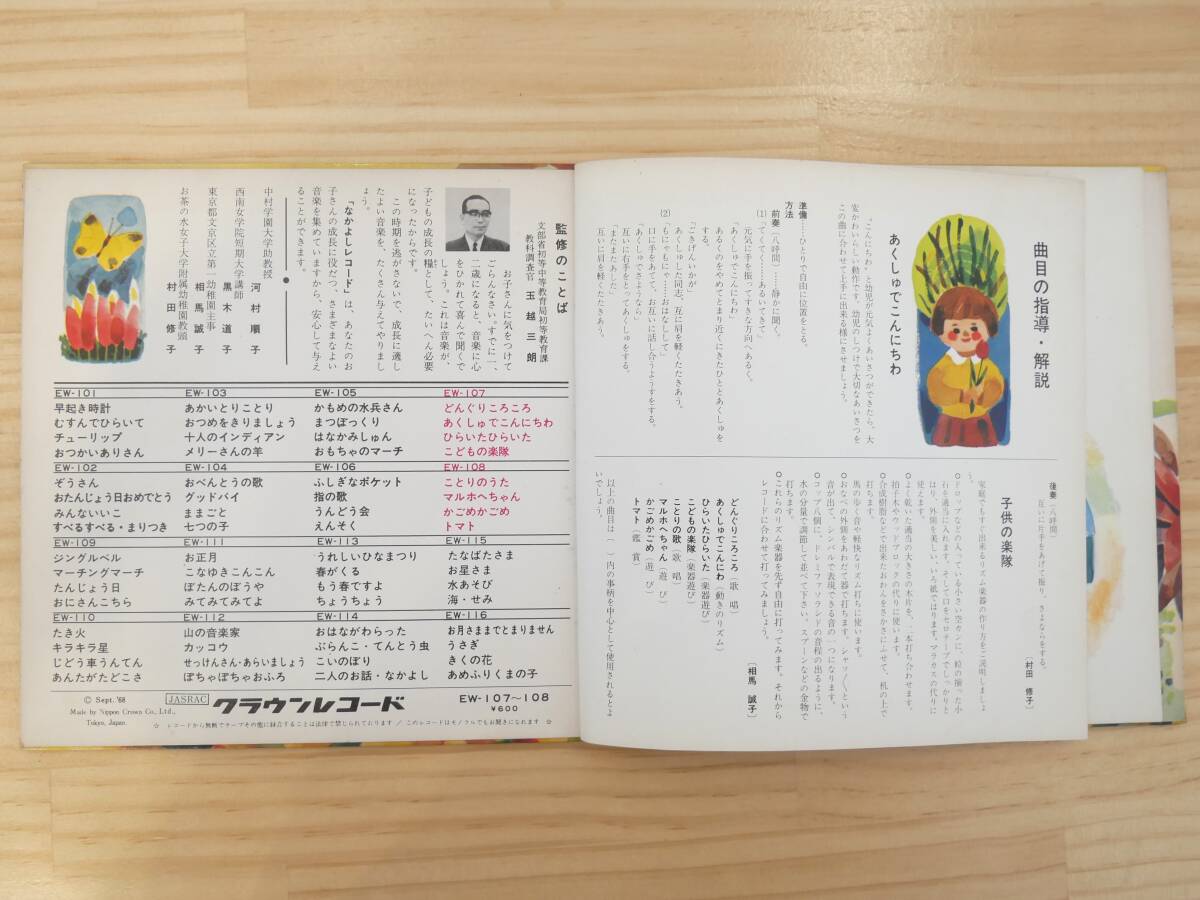 監修のことば
文部省初等中等教育局初等教育課
教科調査官 玉越三朗
お子さんに気をつけて
ごらんなさい。すでに一、
二歳になると、音楽に心
をひかれて喜んで聞くで
しょう。これは音楽が、
子どもの成長の糧として、たいへん必要
になったからです。
この時期を逃がさないで、成長に適し
たよい音楽を、たくさん与えてやりまし
ょう。
「なかよしレコード」は、あなたのお
子さんの成長に役だつ、さまざまなよい
音楽を集めていますから、安心して与え
ることができます。
中村学園大学助教授
河村順子
西南女学院短期大学講師
黒木道子
東京都文京区立第一幼稚園主事
相馬誠子
お茶の水女子大学附属幼稚園教頭
村田修子
EW-101
早起き時計
むすんでひらいて
チューリップ
おつかいありさん
EW-103
あかいとりことり
おつめをきりましょう
十人のインディアン
メリーさんの羊
EW-105
かもめの水兵さん
まつぼっくり
はなかみしゅん
おもちゃのマーチ
EW-107
どんぐりころころ
あくしゅでこんにちわ
ひらいたひらいた
こどもの楽隊
EW-102
ぞうさん
おたんじょう日おめでとう
みんないいこ
すべるすべる・まりつき
EW-104
おべんとうの歌
グッドバイ
ままごと
七つの子
EW-106
ふしぎなポケット
指の歌
うんどう会
えんそく
EW-108
ことりのうた
マルホへちゃん
かごめかごめ
トマト
EW-109
ジングルベル
マーチングマーチ
たんじょう日
おにさんこちら
EW-111
お正月
こなゆきこんこん
ぼたんのぼうや
みてみてみてよ
EW-113
うれしいひなまつり
春がくる
もう春ですよ
ちょうちょう
EW-115
たなばたさま
お星さま
水あそび
海・せみ
EW-110
たき火
キラキラ星
じどう車うんてん
あんたがたどこさ
EW-112
山の音楽家
カッコウ
せっけんさん・あらいましょう
ぽちゃぽちゃおふろ
EW-114
おはながわらった
ぶらんこ・てんとう虫
こいのぼり
二人のお話・なかよし
EW-116
お月さままでとまりません
うさぎ
きくの花
あめふりくまの子
© Sept.'68
Made by Nippon Crown Co., Ltd.,
Tokyo, Japan.
JASRAC
クラウンレコード
EW-107〜108
¥600
☆ レコードから無断でテープその他に録音することは法律で禁じられております / このレコードはモノラルでもお聞きになれます ☆
曲目の指導・解説
あくしゅでこんにちわ
"こんにちわ"と幼児が元気よくあいさつができたら、大
変かわいらしい動作です。幼児のしつけで大切なあいさつを
この曲に合わせて上手に出来る様にさせましょう。
準備……ひとりで自由に位置をとる。
方法
前奏（八呼間）……静かに聞く。
(1)「てくてく……あるいてきて」
元気に手を振ってすきな方向へあるく。
「あくしゅでこんにちわ」
あるくのをやめてとまり近くにきたひととあくしゅを
する。
「ごきげんいかが」
あくしゅした同志、互に肩を軽くたたきあう。
(2)「もにゃもにゃ……おはなしして」
口に手をあてて、お互いに話し合うようすをする。
「あくしゅでさようなら」
互いに右手をとってあくしゅをする。
「またまたあした」
互いに肩を軽くたたきあう。
後奏（八呼間）
互いに片手をあげて振り、さよならをする。
〔村田 修子〕
子供の楽隊
家庭でもすぐ出来るリズム楽器の作り方をご説明しましょう。
○ドロップなどの入っている小さい空カンに、粒の揃った小
石を適当に入れます。そして口をセロテープでしっかりと
はり、外側を美しい、いろ紙ではります。マラカスの代りに
使えます。
○よく乾いた適当の大きさの木片を、二本打ち合わせます。
拍子木やウッドブロックの代りに使います。
○合成樹脂などで出来たおわんをさかさにふせて、机の上で
打ちます。
馬の歩く音や軽快なリズム打ちに使います。
○おなべの外側をあわだて器で打ちます。シャッ／＼という
音が出て、シンバルで表現できる音の一つになります。
○コップ八個に、ドレミファソラシドの音程の出るように、
水の分量で調節して並べて下さい。スプーンなどの金物で
打ちます。
○これらのリズム楽器を先ず自由に打ってみます。それから
レコードに合わせて打ってみましょう。
〔相馬 誠子〕
どんぐりころころ（歌 唱）
あくしゅでこんにわ（動きのリズム）
ひらいたひらいた（楽器遊び）
こどもの楽隊（楽器遊び）
ことりの歌（歌 唱）
マルホへちゃん（遊 び）
かごめかごめ（遊 び）
トマト（鑑 賞）
以上の曲目は（ ）内の事柄を中心として使用されるとよ
いでしょう。